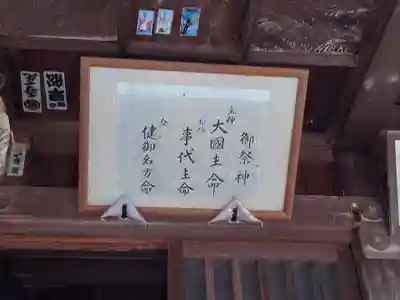 御祭神
主神
大國主命
事代主命
健御名方命